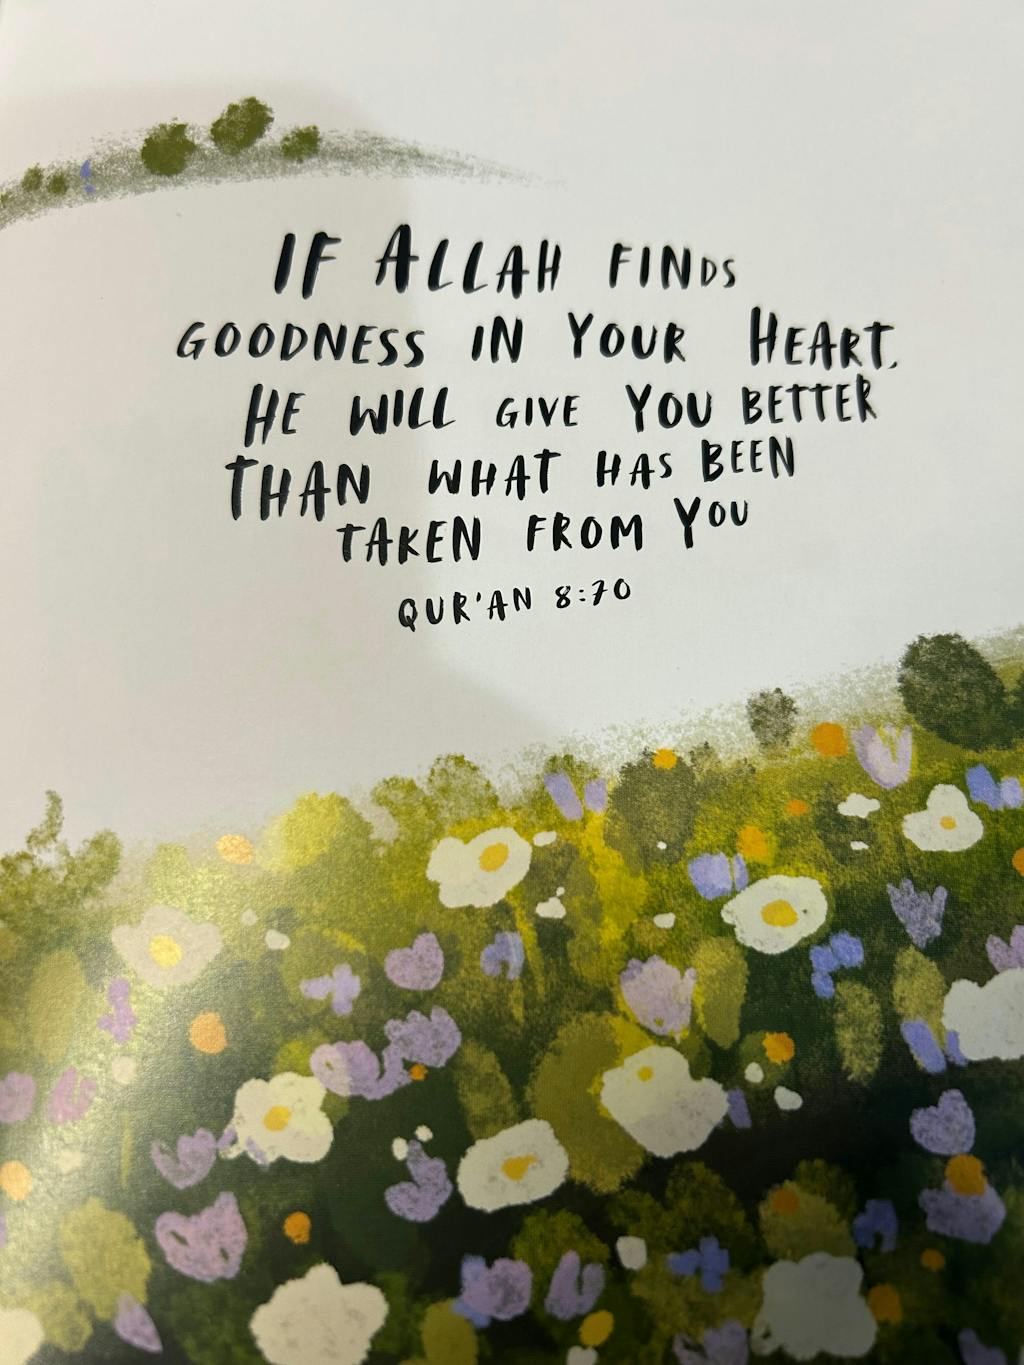 IF ALLAH FINDS
GOODNESS IN YOUR HEART,
HE WILL GIVE YOU BETTER
THAN WHAT HAS BEEN
TAKEN FROM YOU
QUR'AN 8:70